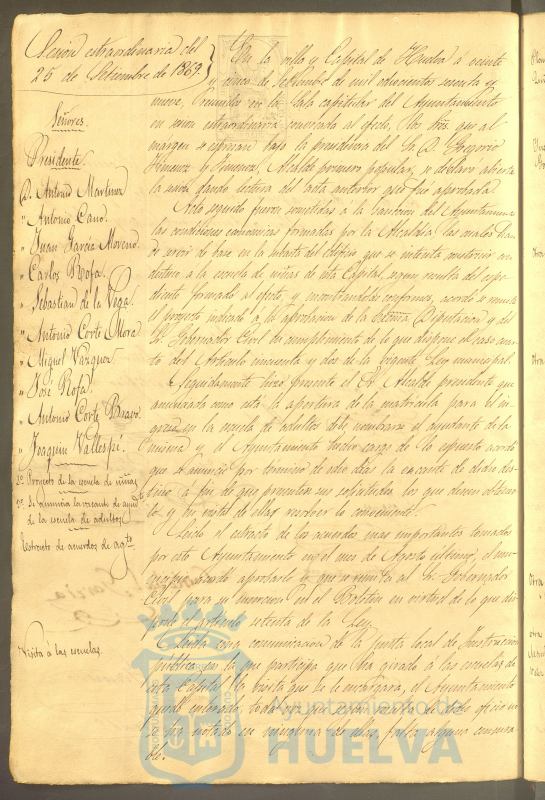 Sesion extraordinaria del
25 de Setiembre de 1869.
Señores.
Presidente.
D. Antonio Martinez
" Antonio Cano.
" Juan Garcia Moreno.
" Carlos Rofa.
" Sebastian de la Vega.
" Antonio Corte Mora
" Miguel Vazquez.
" José Rofa.
" Antonio Corte Bravo
" Joaquin Vallespi.
Proyecto de la escuela de niñas
Se anuncia la vacante de ayud.
de la escuela de adultos
Estracto de acuerdos de ag.to
Visita á las escuelas.
En la villa y Capital de Huelva á veinte
cinco de Setiembre de mil ochocientos sesenta y
nueve, reunido en la Sala capitular del Ayuntamiento
en sesion extraordinaria convocada al efecto, los Sres. que al
margen se espresan bajo la presidencia del Sr. D. Gregorio
Jimenez y Jimenez, Alcalde primero popular, se declaró abierta
la sesion dando lectura del acta anterior que fué aprobada.
Acto seguido fueron sometidas á la sancion del Ayuntamiento
las condiciones económicas formadas por la Alcaldia las cuales han
de servir de base en la subasta del edificio que se intenta construir con
destino á la escuela de niñas de esta Capital, segun resulta del espe-
diente formado al efecto, y encontrandolas conformes, acordó se remita
el proyecto indicado á la aprobacion de la Excma. Diputacion y del
Sr. Gobernador Civil en cumplimiento de lo que dispone el párrafo cuar-
to del Articulo cincuenta y dos de la vigente Ley municipal.
Seguidamente hizo presente el Sr. Alcalde presidente que
anunciada como está la apertura de la matricula para el in-
greso en la escuela de adultos debe nombrarse el ayudante de la
misma y el Ayuntamiento hecho cargo de lo espuesto acordó
que se anuncie por termino de ocho dias la vacante de dicho des-
tino á fin de que presenten sus solicitudes los que deseen obtener-
lo y en vista de ellas resolver lo conveniente.
Leido el estracto de los acuerdos mas importantes tomados
por este Ayuntamiento en el mes de Agosto último, el mu-
nicipio acordó aprobarlo y que se remita al Sr. Gobernador
Civil para su insercion en el Boletin en virtud de lo que dis-
pone el articulo setenta de la Ley.
Leida una comunicacion de la junta local de Instruccion
publica en la que participa que ha girado á las escuelas de
esta Capital la visita que se le encargara, el Ayuntamiento
quedó enterado, toda vez que segun resulta de dicho oficio no
se ha notado en ninguna de ellas, falta alguna censura-
ble.
Ayuntamiento de
HUELVA